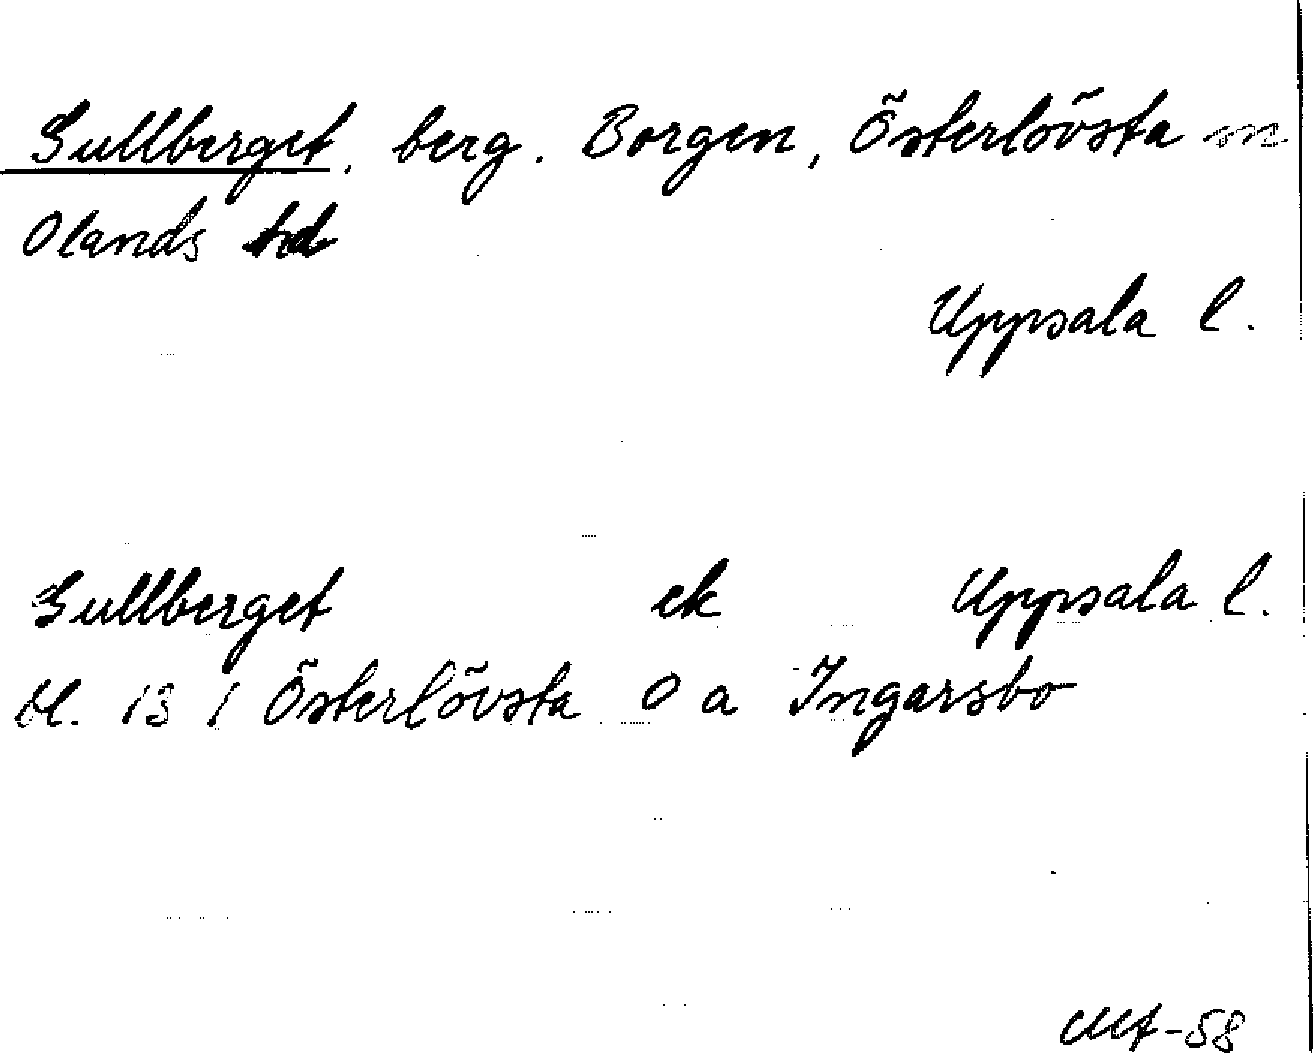 Sullberget, berg. Borgen, Österlövsta sn.
Olands hd
Uppsala l.
Sullberget ek Uppsala l.
bl. 13 i Österlövsta O a Ingarsbo
-58